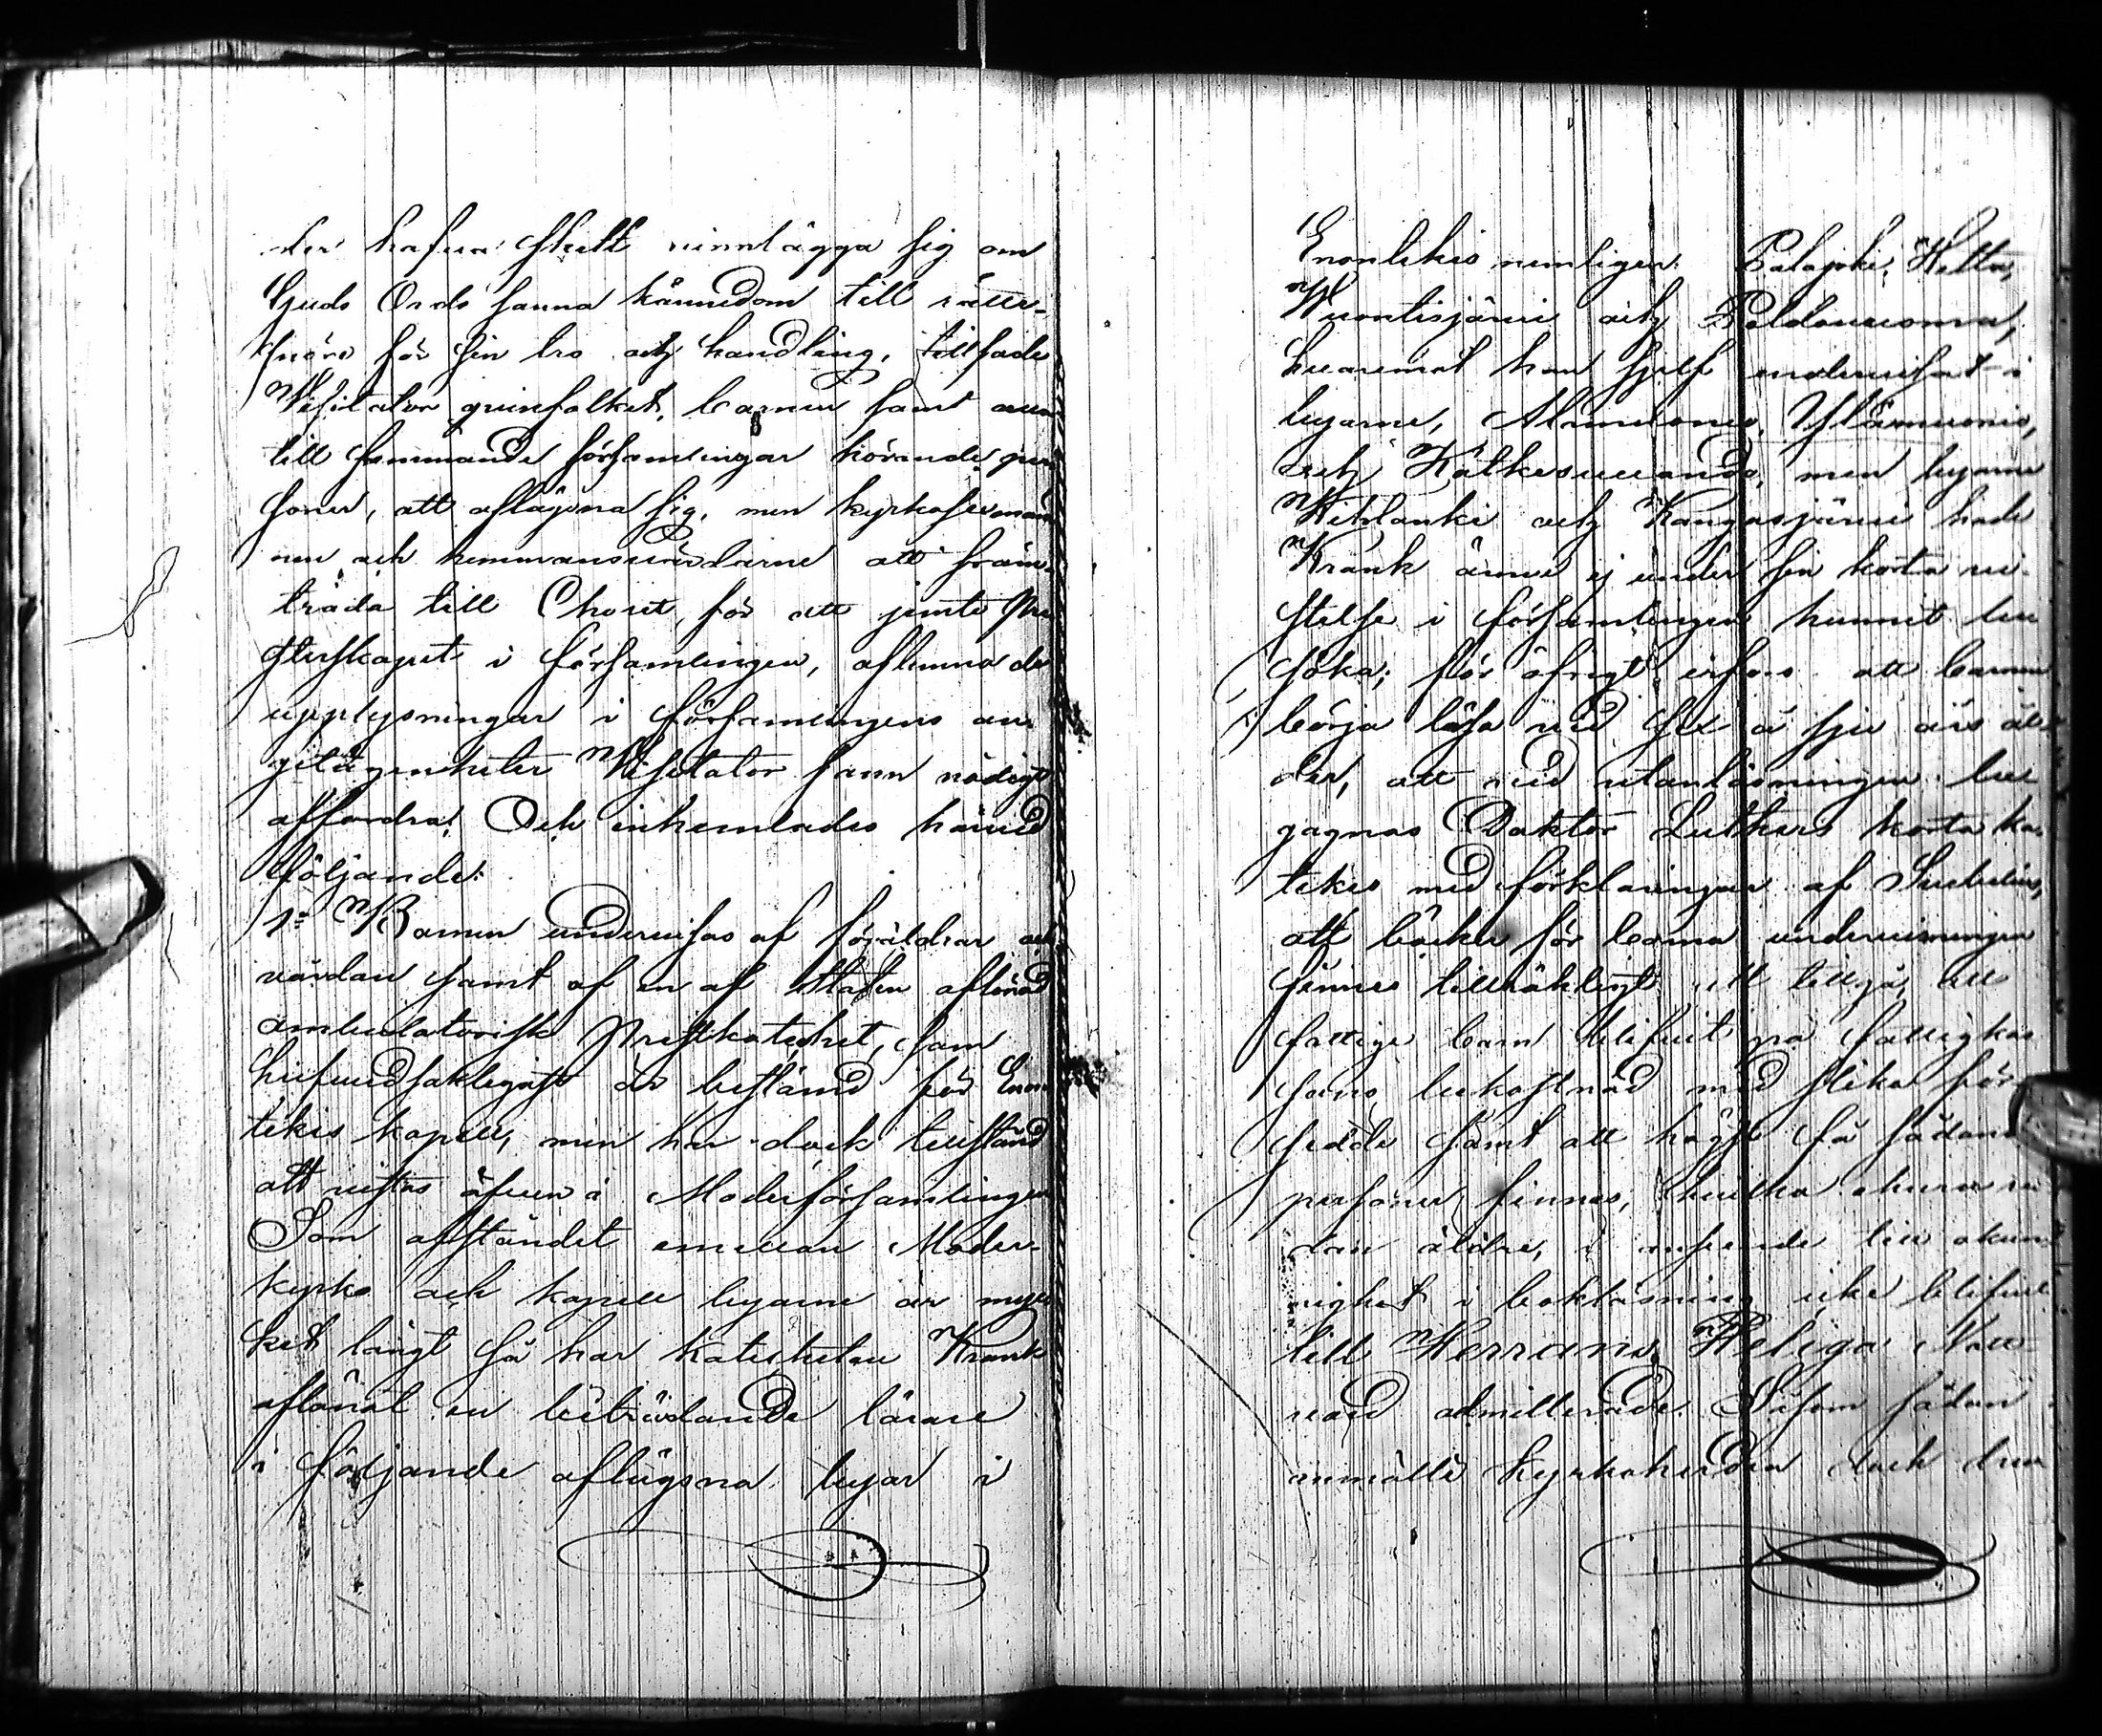 der hafva skolt vinnlägga sig om
Guds Ords sanna kännedom till rätte-
snöre för sin tro och handling, tillsade
Visitator qvinfolket, barnen samt
till främmande församlingar hörande per
soner, att aflägsna sig, men kyrkosexmän
nen och hemmansvärdarne att fram-
träda till Choret för att jemte Pre
sterskapet i församlingen, aflemna de
upplysningar i församlingens an-
gelägenheter Visitator fann nödigt
affordra. Och inhemtades härvid
följande:
1o Barnen undervisas af föräldrar och
vårdan samt af en af Staten aflönad
ambulatorisk Prestkatechet, som
hufvudsakligast är bestämd för Enon-
tekis kapell, men har dock tillstånd
att vistas äfven i Moderförsamlingen
Som afståndet emellan Moder-
kyrko och kapell byarne är myc
ket långt så har katecheten Krank
aflönat en biträdande lärare
i följande aflägsna byar i
Enontekis nemligen Palojoki, Hetta,
Vuontisjärvi och Peldovuoma,
hvaremot han sjelf undervisat i
byarne, Alamuonio, Ylimuonio,
och Kätkesuvando, men byarne
och Kangosjärvi hade
Krank ännu ej under sin korta vi-
stelse i församlingen hunnit be
söka; för öfrigt erfors att barnen
börja läsa vid sex à sju års ål-
der, att vid utanläsningen be
gagnas Doktor Luthers korta ka-
tekes med förklaringar af Svebelius,
att böcker för barna undervisningen
finnes tillräkligt att tillgå, att
fattige barn blifvit på fattigkas
sans bekostnad med slika för-
sedde samt att högst få sådane
personer finnes, hvilka
dan äldre, i anseende till okun-
nighet i bokläsning icke blifvit
till Herrans Heliga Natt-
vard admitterade. Såsom sådan
anmälte kyrkoherden dock